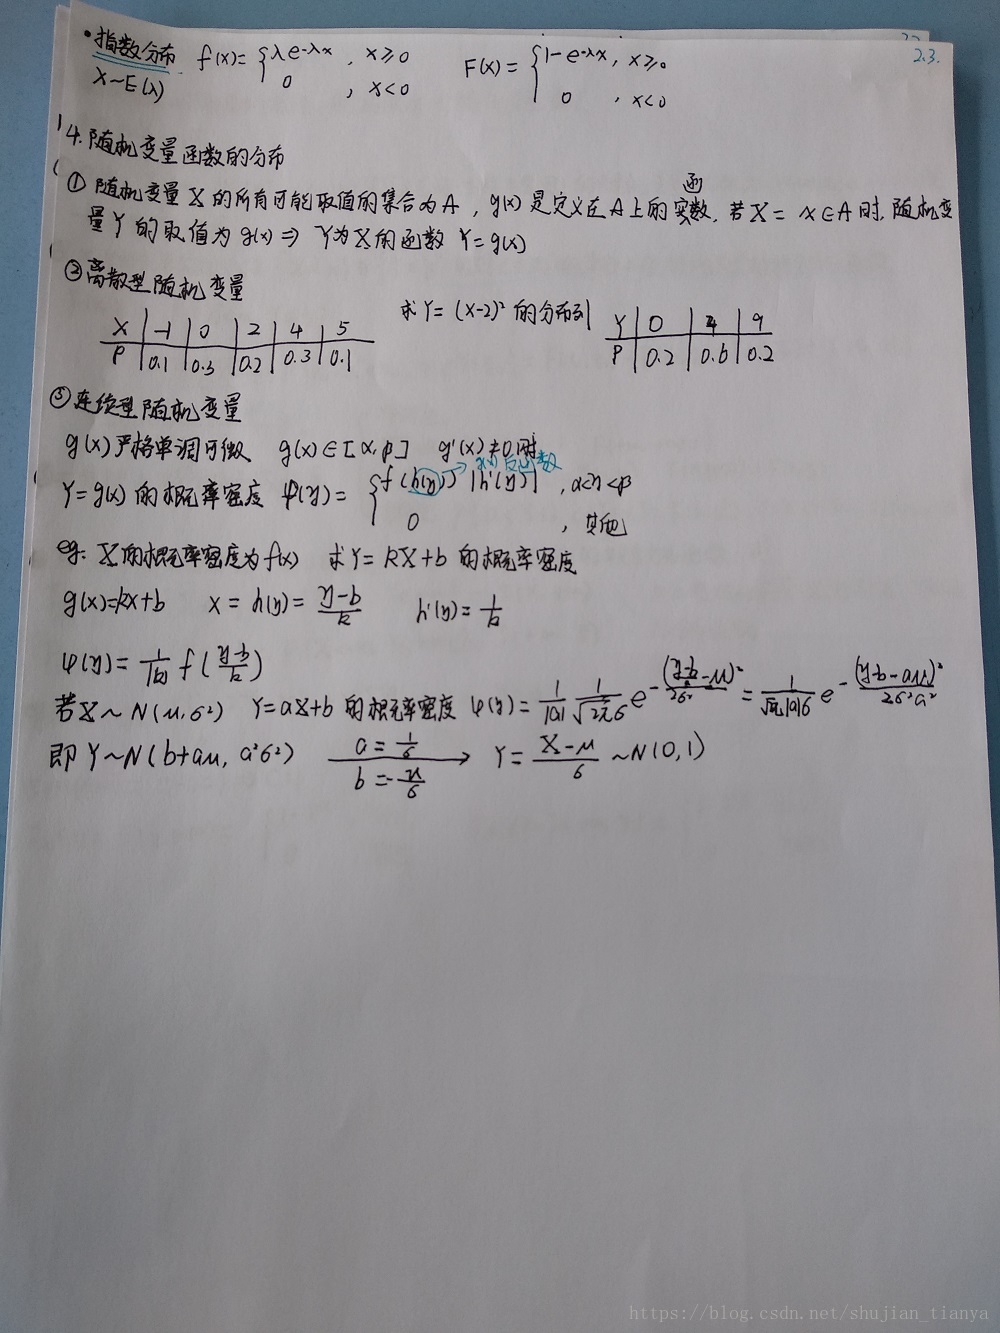 2.3.
·指数分布 f(x)={λe-λx, x≥0 F(x)={1-e-λx, x≥0
X~E(λ) 0, x<0 0, x<0
4.随机变量函数的分布
函
①随机变量X的所有可能取值的集合为A,g(x)是定义在A上的实数,若X=x∈A时,随机变
量Y的取值为g(x)⇒Y为X的函数 Y=g(x)
②离散型随机变量
求Y=(X-2)²的分布列
X -1 0 2 4 5 Y 0 4 9
P 0.1 0.3 0.2 0.3 0.1 P 0.2 0.6 0.2
③连续型随机变量
g(x)严格单调可微 g(x)∈[α,β] g'(x)≠0时
g(x)反函数
Y=g(x)的概率密度 φ(y)={f(h(y))|h'(y)|, α<y<β
0, 其他
eg. X的概率密度为f(x) 求Y=kX+b的概率密度
g(x)=kx+b x=h(y)=(y-b)/k h'(y)=1/k
φ(y)=1/|k| f((y-b)/k)
若X~N(μ,σ²) Y=aX+b的概率密度 φ(y)=1/|a| 1/(√2π σ) e^-((y-b)/a-μ)²/2σ² = 1/(√2π|a|σ) e^-(y-b-aμ)²/2σ²a²
即Y~N(b+aμ, a²σ²) a=1/σ b=-μ/σ → Y=(X-μ)/σ ~N(0,1)
https://blog.csdn.net/shujian_tianya